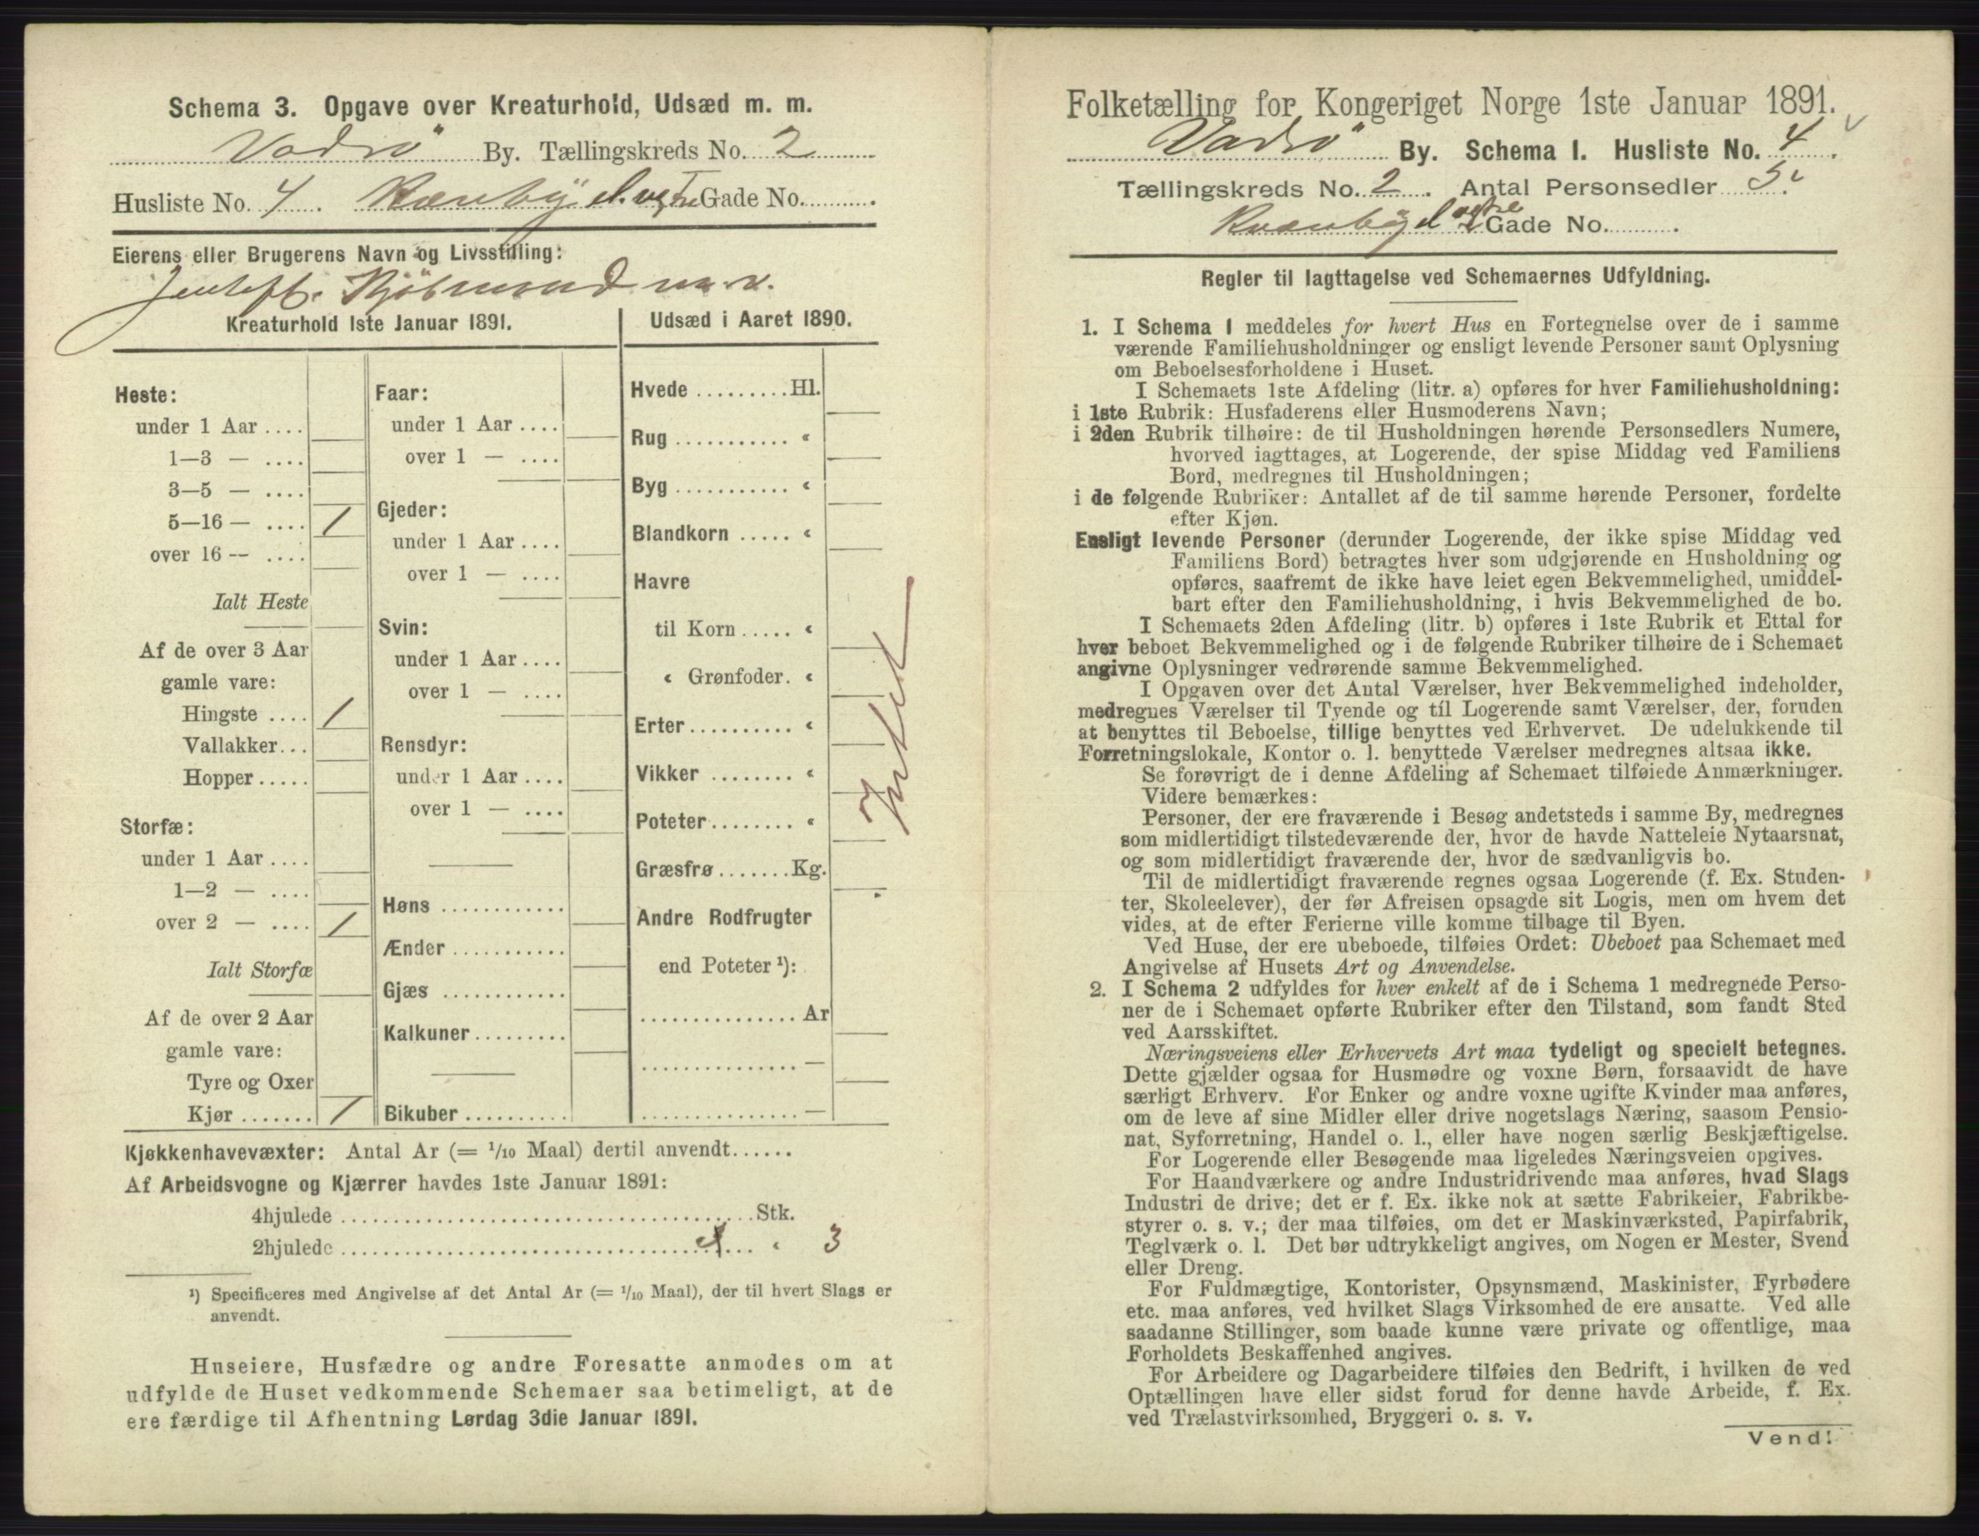 Schema 3. Opgave over Kreaturhold, Udsæd m. m.
Vadsø By. Tællingskreds No. 2
Husliste No. 4 . Kvænbyd. vestre Gade No. .
Eierens eller Brugerens Navn og Livsstilling:
Jentoft. Kjøbmand m. v.
Kreaturhold 1ste Januar 1891.
Heste:
under 1 Aar ....
1—3 — ....
3—5 — ....
5—16 — .... 1
over 16 -- ....
Ialt Heste
Af de over 3 Aar
gamle vare:
Hingste .... 1
Vallakker...
Hopper.....
Storfæ:
under 1 Aar ....
1—2 — ....
over 2 — .... 1
Ialt Storfæ
Af de over 2 Aar
gamle vare:
Tyre og Oxer
Kjør ....... 1
Faar:
under 1 Aar ....
over 1 — ....
Gjeder:
under 1 Aar ....
over 1 — ....
Svin:
under 1 Aar ....
over 1 — ....
Rensdyr:
under 1 Aar ....
over 1 — ....
Høns ............
Ænder ...........
Gjæs ............
Kalkuner.........
Bikuber ..........
Udsæd i Aaret 1890.
Hvede .........Hl.
Rug ........... «
Byg ........... «
Blandkorn ..... «
Havre
til Korn ..... «
« Grønfoder. «
Erter.......... «
Vikker ........ «
Poteter........ «
Græsfrø.......Kg.
Andre Rodfrugter
end Poteter ¹):
............... Ar
............... —
............... —
Intet
Kjøkkenhavevæxter: Antal Ar (= 1/10 Maal) dertil anvendt......
Af Arbeidsvogne og Kjærrer havdes 1ste Januar 1891:
4hjulede ........................................Stk.
2hjulede ........................................ « 3
¹) Specificeres med Angivelse af det Antal Ar (= 1/10 Maal), der til hvert Slags er
anvendt.
Huseiere, Husfædre og andre Foresatte anmodes om at
udfylde de Huset vedkommende Schemaer saa betimeligt, at de
ere færdige til Afhentning Lørdag 3die Januar 1891.
Folketælling for Kongeriget Norge 1ste Januar 1891.
Vadsø By. Schema I. Husliste No. 4 .
Tællingskreds No. 2 . Antal Personsedler 5.
Kvænbyd vestre Gade No. .
Regler til Iagttagelse ved Schemaernes Udfyldning.
1. I Schema 1 meddeles for hvert Hus en Fortegnelse over de i samme
værende Familiehusholdninger og ensligt levende Personer samt Oplysning
om Beboelsesforholdene i Huset.
I Schemaets 1ste Afdeling (litr. a) opføres for hver Familiehusholdning:
i 1ste Rubrik: Husfaderens eller Husmoderens Navn;
i 2den Rubrik tilhøire: de til Husholdningen hørende Personsedlers Numere,
hvorved iagttages, at Logerende, der spise Middag ved Familiens
Bord, medregnes til Husholdningen;
i de følgende Rubriker: Antallet af de til samme hørende Personer, fordelte
efter Kjøn.
Ensligt levende Personer (derunder Logerende, der ikke spise Middag ved
Familiens Bord) betragtes hver som udgjørende en Husholdning og
opføres, saafremt de ikke have leiet egen Bekvemmelighed, umiddel-
bart efter den Familiehusholdning, i hvis Bekvemmelighed de bo.
I Schemaets 2den Afdeling (litr. b) opføres i 1ste Rubrik et Ettal for
hver beboet Bekvemmelighed og i de følgende Rubriker tilhøire de i Schemaet
angivne Oplysninger vedrørende samme Bekvemmelighed.
I Opgaven over det Antal Værelser, hver Bekvemmelighed indeholder,
medregnes Værelser til Tyende og til Logerende samt Værelser, der, foruden
at benyttes til Beboelse, tillige benyttes ved Erhvervet. De udelukkende til
Forretningslokale, Kontor o. l. benyttede Værelser medregnes altsaa ikke.
Se forøvrigt de i denne Afdeling af Schemaet tilføiede Anmærkninger.
Videre bemærkes:
Personer, der ere fraværende i Besøg andetsteds i samme By, medregnes
som midlertidigt tilstedeværende der, hvor de havde Natteleie Nytaarsnat,
og som midlertidigt fraværende der, hvor de sædvanligvis bo.
Til de midlertidigt fraværende regnes ogsaa Logerende (f. Ex. Studen-
ter, Skoleelever), der før Afreisen opsagde sit Logis, men om hvem det
vides, at de efter Ferierne ville komme tilbage til Byen.
Ved Huse, der ere ubeboede, tilføies Ordet: Ubeboet paa Schemaet med
Angivelse af Husets Art og Anvendelse.
2. I Schema 2 udfyldes for hver enkelt af de i Schema 1 medregnede Perso-
ner de i Schemaet opførte Rubriker efter den Tilstand, som fandt Sted
ved Aarsskiftet.
Næringsveiens eller Erhvervets Art maa tydeligt og specielt betegnes.
Dette gjælder ogsaa for Husmødre og voxne Børn, forsaavidt de have
særligt Erhverv. For Enker og andre voxne ugifte Kvinder maa anføres,
om de leve af sine Midler eller drive nogetslags Næring, saasom Pensio-
nat, Syforretning, Handel o. l., eller have nogen særlig Beskjæftigelse.
For Logerende eller Besøgende maa ligeledes Næringsveien opgives.
For Haandværkere og andre Industridrivende maa anføres, hvad Slags
Industri de drive; det er f. Ex. ikke nok at sætte Fabrikeier, Fabrikbe-
styrer o. s. v.; der maa tilføies, om det er Maskinværksted, Papirfabrik,
Teglværk o. l. Det bør udtrykkeligt angives, om Nogen er Mester, Svend
eller Dreng.
For Fuldmægtige, Kontorister, Opsynsmænd, Maskinister, Fyrbødere
etc. maa anføres, ved hvilket Slags Virksomhed de ere ansatte. Ved alle
saadanne Stillinger, som baade kunne være private og offentlige, maa
Forholdets Beskaffenhed angives.
For Arbeidere og Dagarbeidere tilføies den Bedrift, i hvilken de ved
Optællingen have eller sidst forud for denne havde Arbeide, f. Ex.
ved Trælastvirksomhed, Bryggeri o. s. v.
Vend!